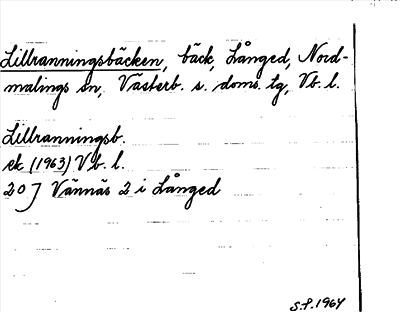 Lillranningsbäcken, bäck, Långed, Nord-
malings sn, Västerb. s. doms. tg, Vb. l.
Lillranningsb.
ek (1963) Vb. l.
20 J Vännäs 2 i Långed
S.P. 1964